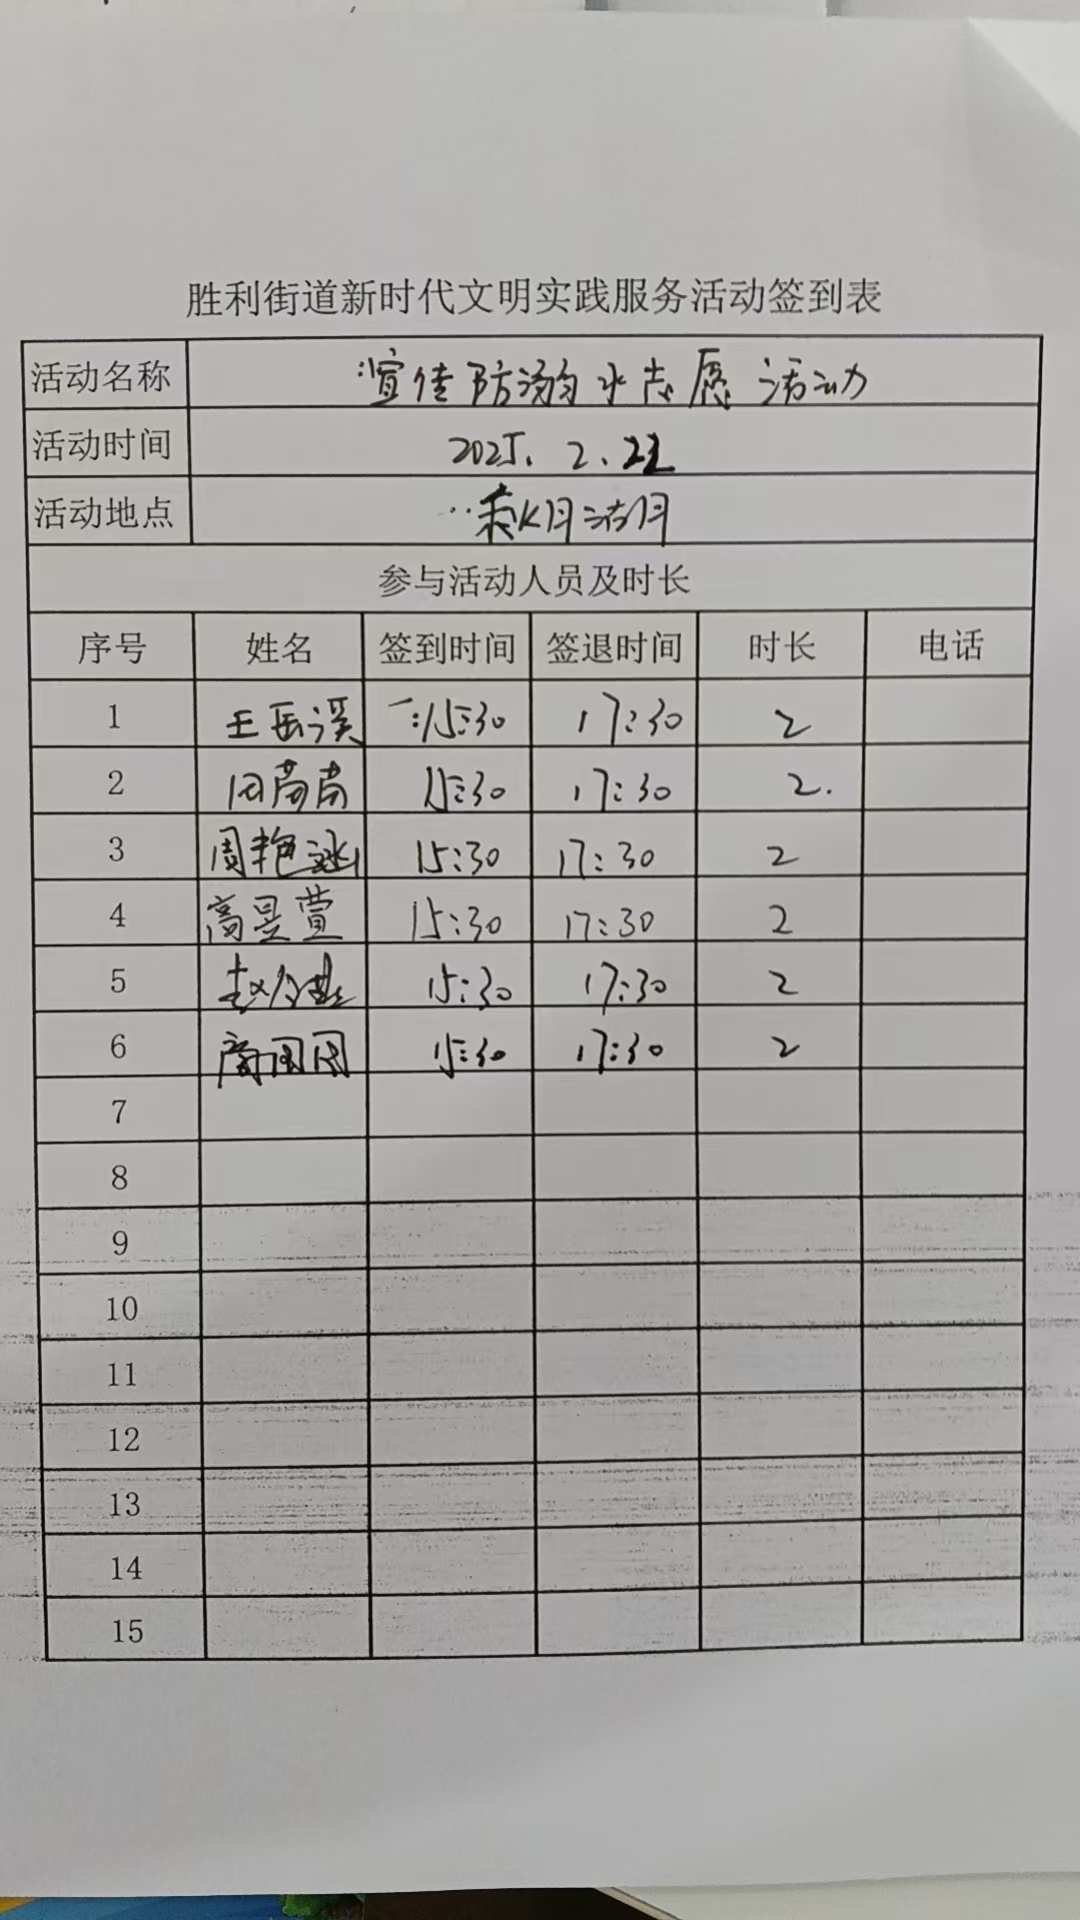 胜利街道新时代文明实践服务活动签到表
活动名称 宣传防溺水志愿活动
活动时间 2025. 2. 22
活动地点
参与活动人员及时长
序号 姓名 签到时间 签退时间 时长 电话
1 王岳溪 15:30 17:30 2
2 15:30 17:30 2.
3 周艳 15:30 17:30 2
4 高昱萱 15:30 17:30 2
5 赵 15:30 17:30 2
6 15:30 17:30 2
7
8
9
10
11
12
13
14
15